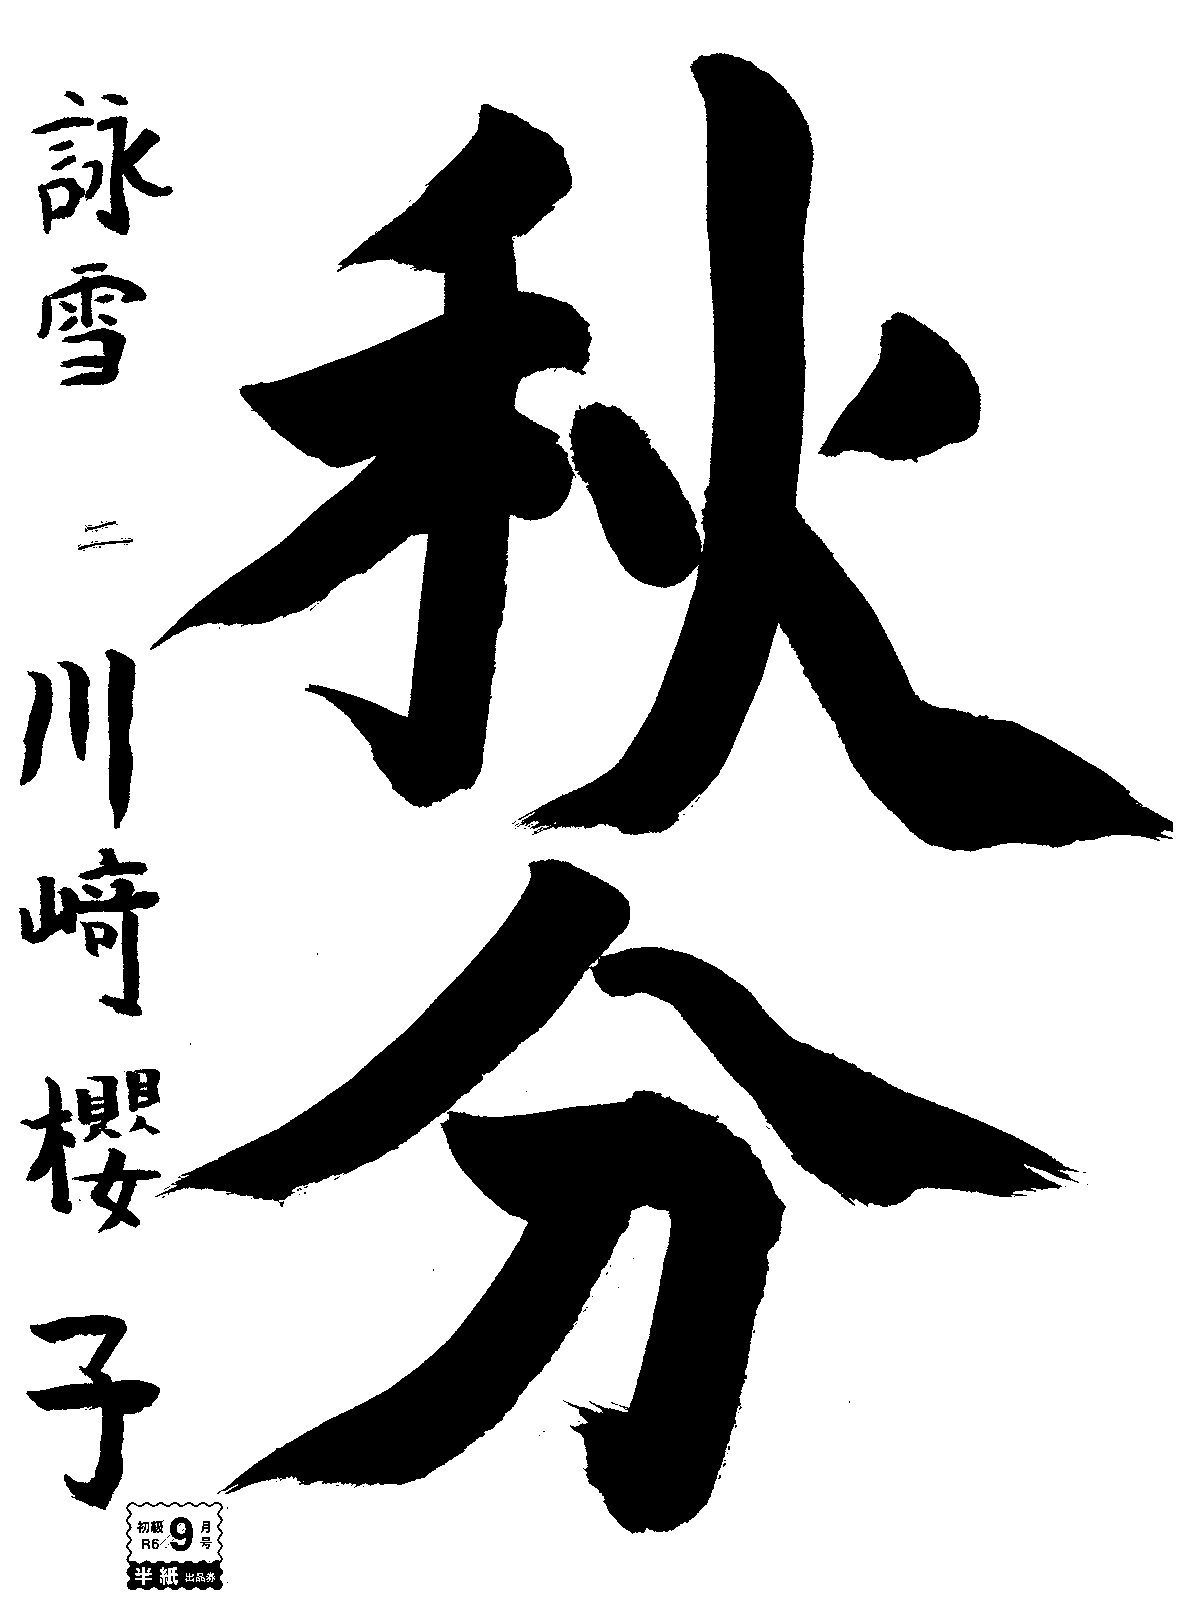 秋分
詠雪 二 川﨑櫻子
初級 R6 9 月号
半紙 出品券